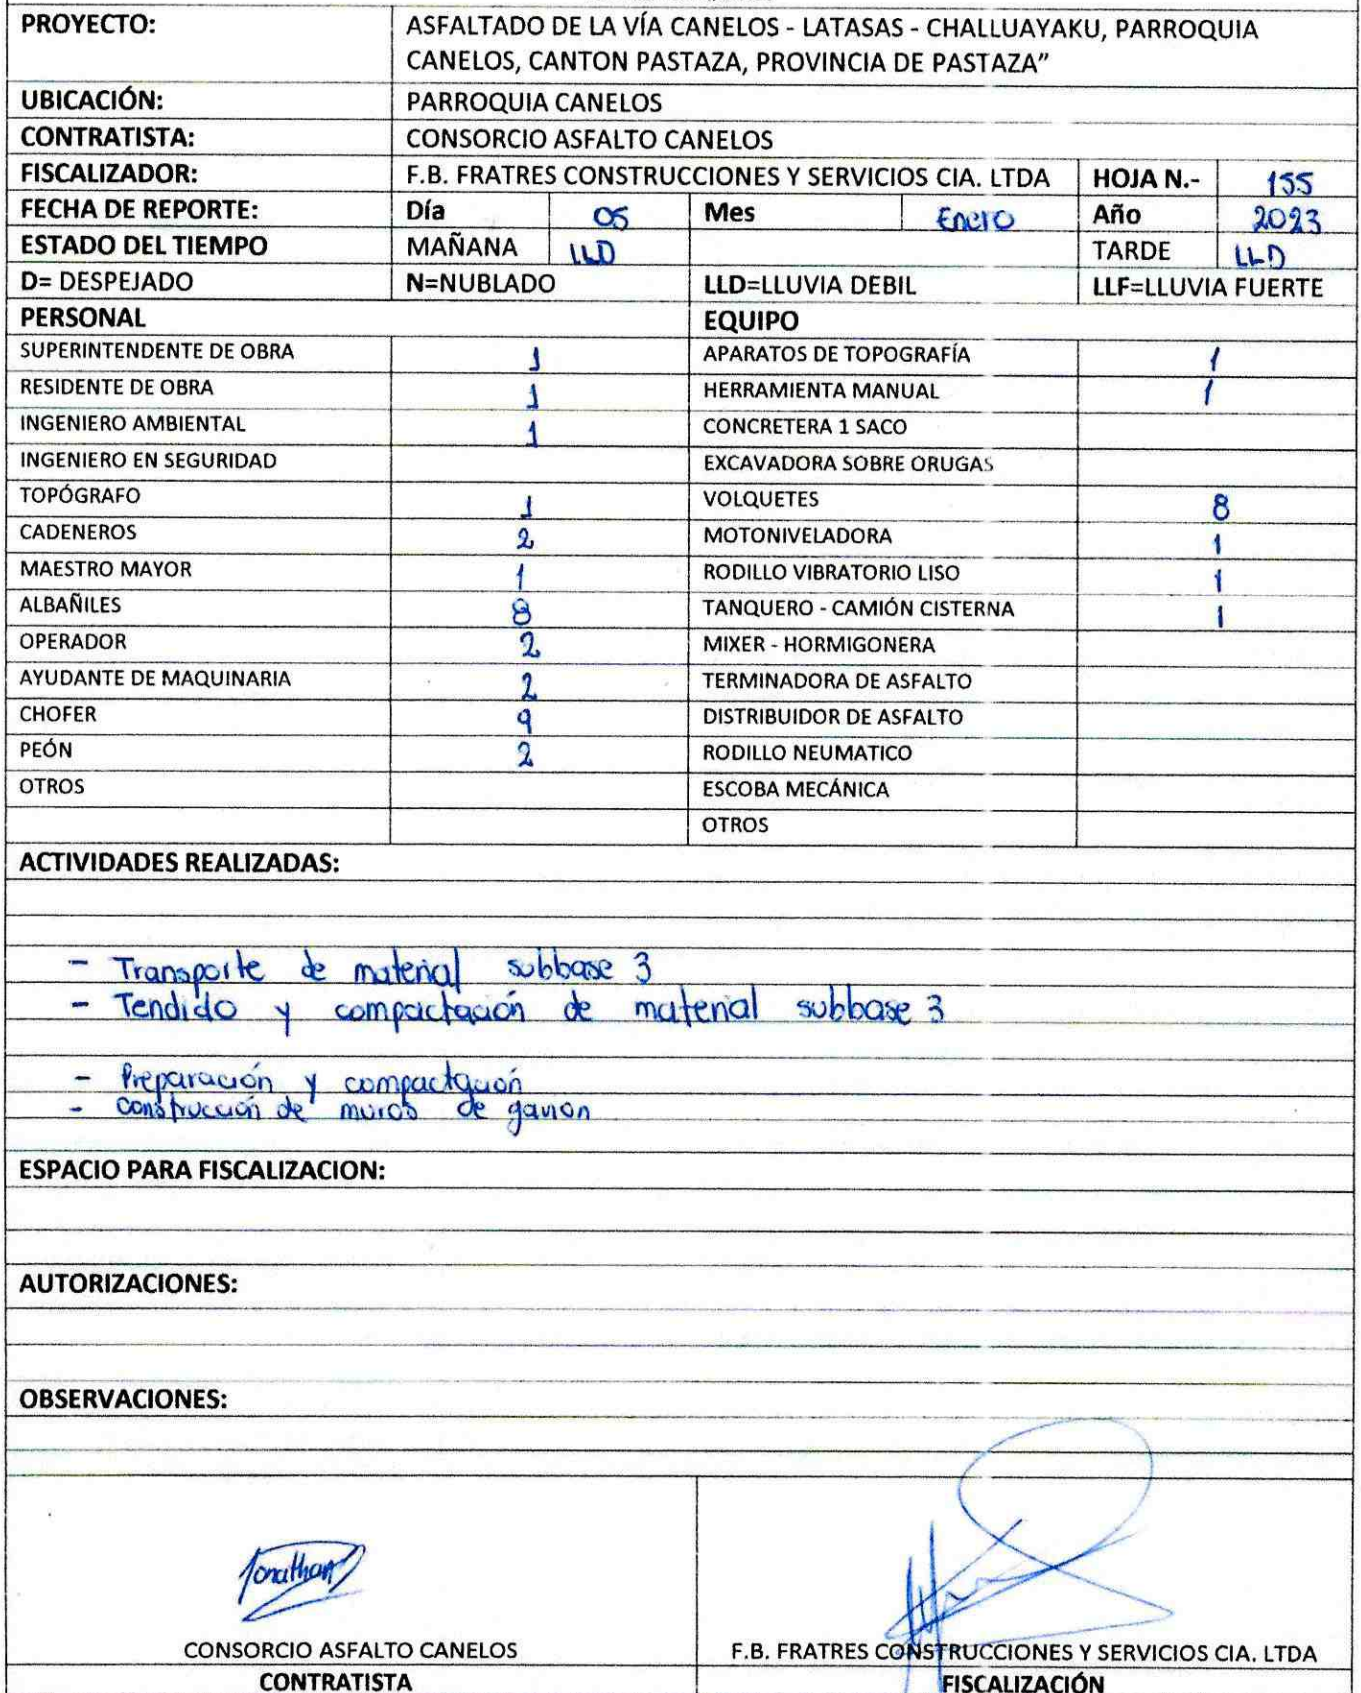 PROYECTO: ASFALTADO DE LA VÍA CANELOS - LATASAS - CHALLUAYAKU, PARROQUIA
CANELOS, CANTON PASTAZA, PROVINCIA DE PASTAZA”
UBICACIÓN: PARROQUIA CANELOS
CONTRATISTA: CONSORCIO ASFALTO CANELOS
FISCALIZADOR: F.B. FRATRES CONSTRUCCIONES Y SERVICIOS CIA. LTDA HOJA N.- 155
FECHA DE REPORTE: Día 05 Mes Enero Año 2023
ESTADO DEL TIEMPO MAÑANA LLD TARDE LLD
D= DESPEJADO N=NUBLADO LLD=LLUVIA DEBIL LLF=LLUVIA FUERTE
PERSONAL EQUIPO
SUPERINTENDENTE DE OBRA 1 APARATOS DE TOPOGRAFÍA 1
RESIDENTE DE OBRA 1 HERRAMIENTA MANUAL 1
INGENIERO AMBIENTAL 1 CONCRETERA 1 SACO
INGENIERO EN SEGURIDAD EXCAVADORA SOBRE ORUGAS
TOPÓGRAFO 1 VOLQUETES 8
CADENEROS 2 MOTONIVELADORA 1
MAESTRO MAYOR 1 RODILLO VIBRATORIO LISO 1
ALBAÑILES 8 TANQUERO - CAMIÓN CISTERNA 1
OPERADOR 2 MIXER - HORMIGONERA
AYUDANTE DE MAQUINARIA 2 TERMINADORA DE ASFALTO
CHOFER 9 DISTRIBUIDOR DE ASFALTO
PEÓN 2 RODILLO NEUMATICO
OTROS ESCOBA MECÁNICA
OTROS
ACTIVIDADES REALIZADAS:
- Transporte de material subbase 3
- Tendido y compactación de material subbase 3
- Preparación y compactación
- Construcción de muros de gavion
ESPACIO PARA FISCALIZACION:
AUTORIZACIONES:
OBSERVACIONES:
Jonathan
CONSORCIO ASFALTO CANELOS F.B. FRATRES CONSTRUCCIONES Y SERVICIOS CIA. LTDA
CONTRATISTA FISCALIZACIÓN